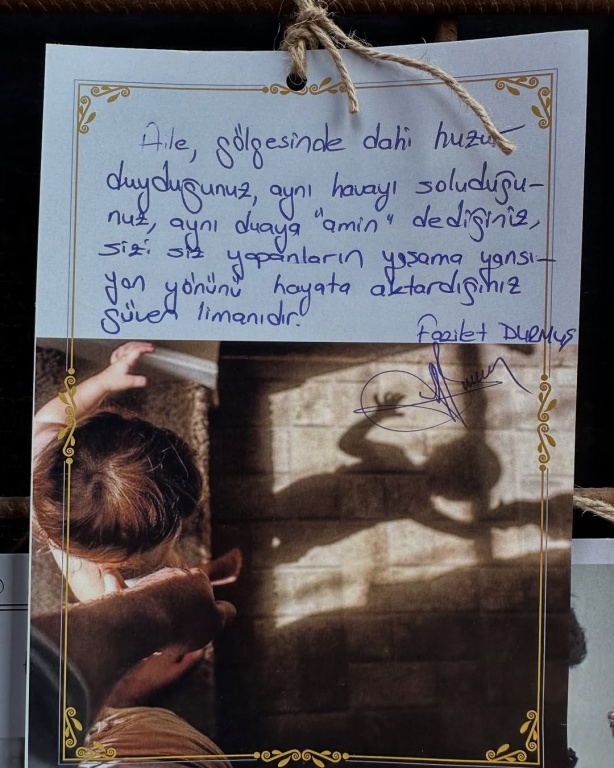 Aile, gölgesinde dahi huzur
duyduğunuz, aynı havayı soluduğu-
nuz, aynı duaya "amin" dediğiniz,
sizi siz yapanların yaşama yansı-
yan yönünü hayata aktardığınız
güven limanıdır.
Fazilet DURMUŞ